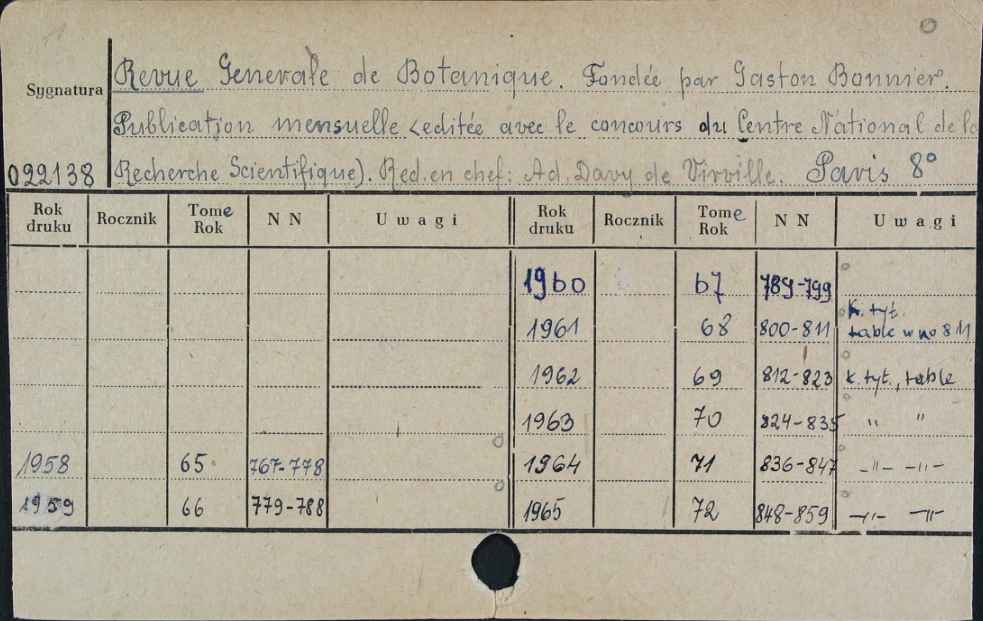 Revue Generale de Botanique. Fondée par Gaston Bonnier.
Sygnatura
Publication mensuelle (editée avec le concours du Centre National de la
022138 Recherche Scientifique). Red. en chef: Ad. Davy de Virville. Paris 8°
Rok druku Rocznik Tome Rok N N Uwagi Rok druku Rocznik Tome Rok N N Uwagi
1960 67 789-799
1961 68 800-811 k. tyt. table w no 811
1962 69 812-823 k. tyt., table
1963 70 824-835 " "
1958 65 767-778 1964 71 836-847 -"- -"-
1959 66 779-788 1965 72 848-859 -"- -"-